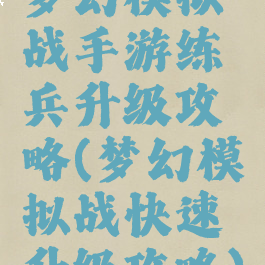 梦幻模拟
战手游练
兵升级攻
略(梦幻模
拟战快速
升级攻略)